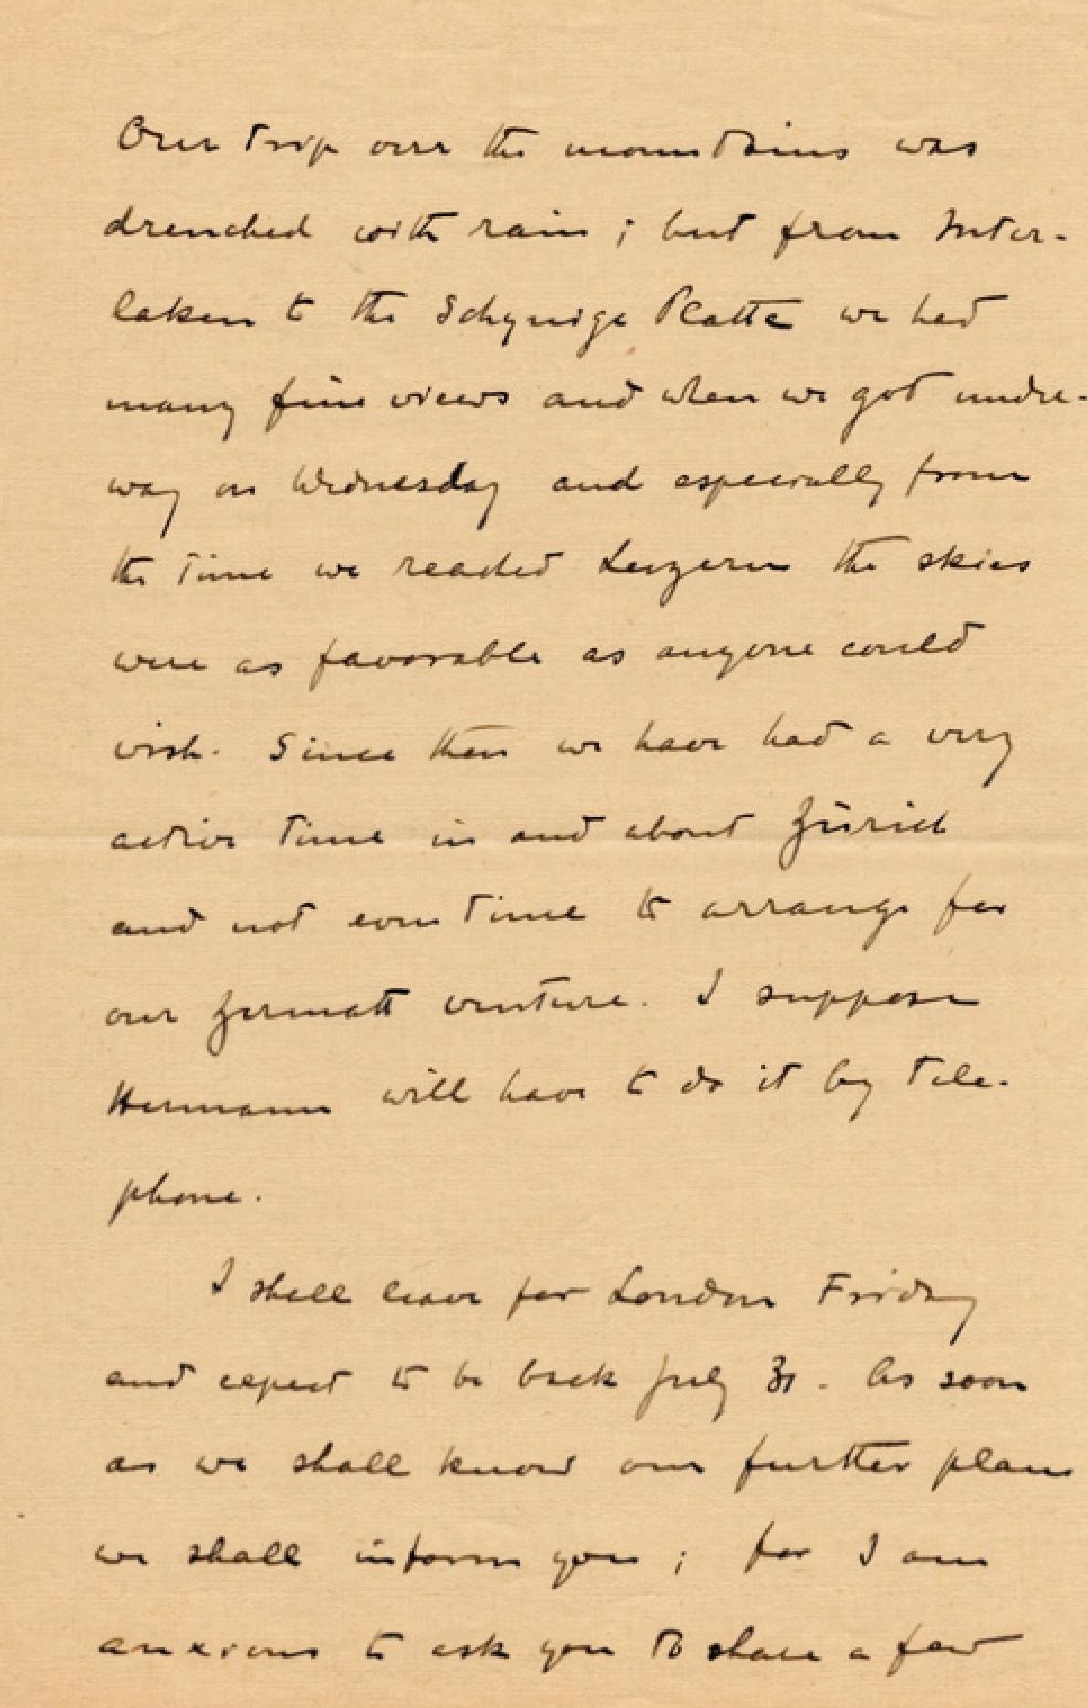 Our trip over the mountains was
drenched with rain; but from Inter-
laken to the Schynige Platte we had
many fine views and when we got under-
way on Wednesday and especially from
the time we reached Luzern the skies
were as favorable as anyone could
wish. Since then we have had a very
active time in and about Zürich
and not even time to arrange for
our Zermatt venture. I suppose
Hermann will have to do it by tele-
phone.
I shall leave for London Friday
and expect to be back July 31. As soon
as we shall know our further plans
we shall inform you; for I am
anxious to ask you to share a few